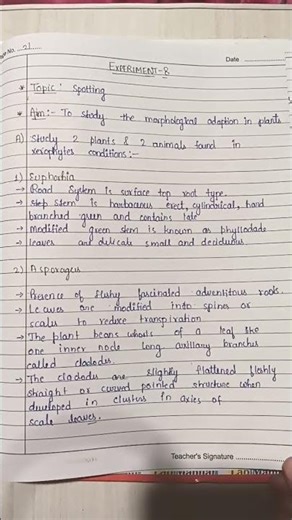 Page No. 21
Date
EXPERIMENT-8
* Topic: Spotting
* Aim:- To study the morphological adoption in plants
A) Study 2 plants & 2 animals found in
xerophytes conditions:-
1) Euphorbia
→ Road System is surface tap root type.
→ Stem is herbaceous erect, cylindrical, hard
branched green and contains late
→ Modified green stem is known as phylloclade
→ leaves are delicate small and deciduous
2) Asparagus
→ Presence of fleshy fascinated adventitous roots.
→ Leaves are modified into spines or
scales to reduce transpiration
→ The plant bears whorls of a leaf like
one inner node long auxillary branches
called cladodes.
→ The cladodes are slightly flattened fleshly
straight or curved pointed structure when
developed in clusters in axies of
scale leaves.
Teacher's Signature